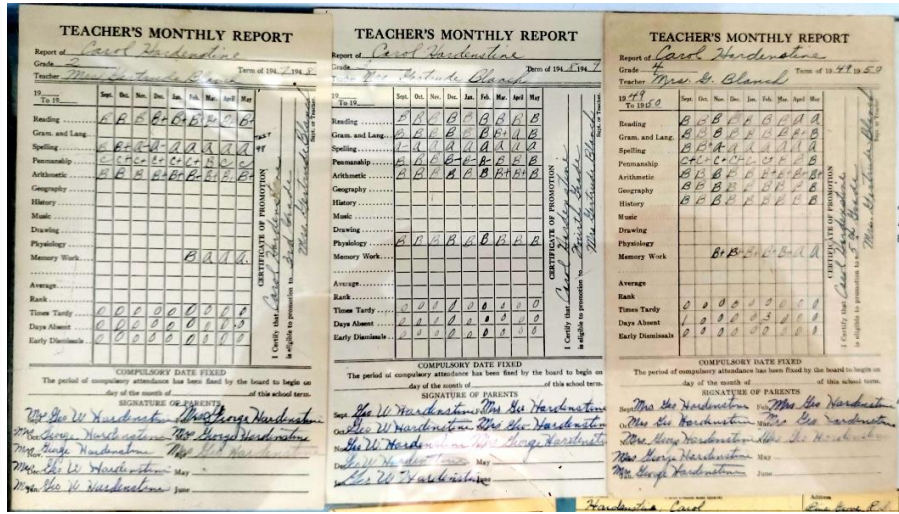 TEACHER'S MONTHLY REPORT
Report of Carol Hardenstine
Grade 2 Term of 1947 1948
Teacher Mrs. Gertrude Blanch
19
To 19 Sept. Oct. Nov. Dec. Jan. Feb. Mar. April May
Reading B B B B+ B+ B B+ B+
Gram. and Lang.
Spelling B B+ a- a- a a a a a
Penmanship C C+ C+ C+ C+ C B C C
Arithmetic B B B B+ B+ B+ B+ B+ B+
Geography
History
Music
Drawing
Physiology
Memory Work B a a a
Average
Rank
Times Tardy 0 0 0 0 0 0 0 0 0
Days Absent 0 0 0 0 0 0 0 0 0
Early Dismissals 0 0 0 0 0 0 0 0 0
CERTIFICATE OF PROMOTION
I Certify that Carol Hardenstine
is eligible to promotion to 3rd Grade
Mrs. Gertrude Blanch
Supt. or Teacher
COMPULSORY DATE FIXED
The period of compulsory attendance has been fixed by the board to begin on
day of the month of of this school term.
SIGNATURE OF PARENTS
Geo W Hardenstine Mrs George Hardenstine
Mrs George Hardenstine Mrs George Hardenstine
Mrs George Hardenstine Mrs Geo Hardenstine
Geo W Hardenstine May
Geo W Hardenstine June
TEACHER'S MONTHLY REPORT
Report of Carol Hardenstine
Grade Term of 1948 1949
Mrs. Gertrude Blanch
19
To 19 Sept. Oct. Nov. Dec. Jan. Feb. Mar. April May
Reading B B B B B B B B B
Gram. and Lang. B B B B B B B+ a B
Spelling a a a a a a a a a
Penmanship B B B B- B- B- B B B
Arithmetic B B B B B B B+ B+ B
Geography
History
Music
Drawing
Physiology B B B B B B B B B
Memory Work
Average
Rank
Times Tardy 0 0 0 0 0 0 0 0 0
Days Absent 0 0 0 0 0 0 0 0 0
Early Dismissals 0 0 0 0 0 0 0 0 0
CERTIFICATE OF PROMOTION
I Certify that Carol Hardenstine
is eligible to promotion to Fourth Grade
Mrs Gertrude Blanch
Supt. or Teacher
COMPULSORY DATE FIXED
The period of compulsory attendance has been fixed by the board to begin on
day of the month of of this school term.
SIGNATURE OF PARENTS
Sept. Geo W Hardenstine Mrs Geo Hardenstine
Geo W Hardenstine Mrs Geo Hardenstine
Geo W Hardenstine Mrs George Hardenstine
Geo W Hardenstine May
Geo W Hardenstine
TEACHER'S MONTHLY REPORT
Report of Carol Hardenstine
Grade 4 Term of 1949 1950
Teacher Mrs. G. Blanch
1949
To 1950 Sept. Oct. Nov. Dec. Jan. Feb. Mar. April May
Reading B B B B B B B a a
Gram. and Lang. B B B B B B B B+ B
Spelling B B a a a a a a a
Penmanship C+ C+ C+ C C+ B B B
Arithmetic B B B B B B+ B+ B+ B+
Geography B B B B B B B B B
History B B B B B B B B B
Music
Drawing
Physiology
Memory Work B+ B+ B+ B+ B+ a a
Average
Rank
Times Tardy 0 0 0 0 0 0 0 0 0
Days Absent 1 0 0 0 0 3 0 0 0
Early Dismissals 0 0 0 0 0 0 0 0 0
CERTIFICATE OF PROMOTION
I Certify that Carol Hardenstine
is eligible to promotion to 5th Grade
Mrs. Gertrude Blanch
Supt. or Teacher
COMPULSORY DATE FIXED
The period of compulsory attendance has been fixed by the board to begin on
day of the month of of this school term.
SIGNATURE OF PARENTS
Sept. Mrs Geo Hardenstine Feb. Mrs Geo Hardenstine
Mrs Geo Hardenstine Mrs Geo Hardenstine
Mrs George Hardenstine Mrs Geo Hardenstine
Mrs George Hardenstine May
Mrs George Hardenstine June
Hardenstine, Carol
Address
Pine Grove, R.D.